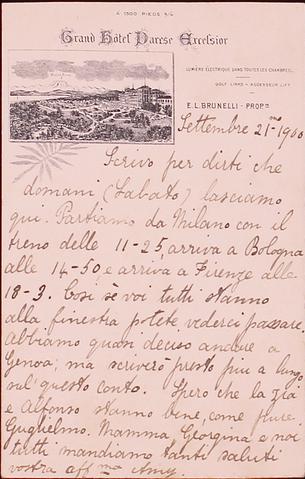 A 1500 PIEDS S/M
Grand Hôtel Varese Excelsior
LUMIÈRE ÉLECTRIQUE DANS TOUTES LES CHAMBRES
GOLF LINKS - ASCENSEUR LIFT
E. L. BRUNELLI - PROP.
Settembre 21 - 1900
Scrivo per dirti che
domani (Sabato) lasciamo
qui. Partiamo da Milano con il
treno delle 11-25, arriva a Bologna
alle 14-50, e arriva a Firenze alle
18-3. Così sè voi tutti stanno
alla finestra potete vederci passare.
abbiamo quasi deciso andare a
Genoa; ma scriverò presto piu a lung
sul' questo conto. Spero che la zia
e Alfonso stanno bene, come pure
Guglielmo. Mamma Georgina e noi
tutti mandiamo tanti saluti
vostra aff.ma Amy.